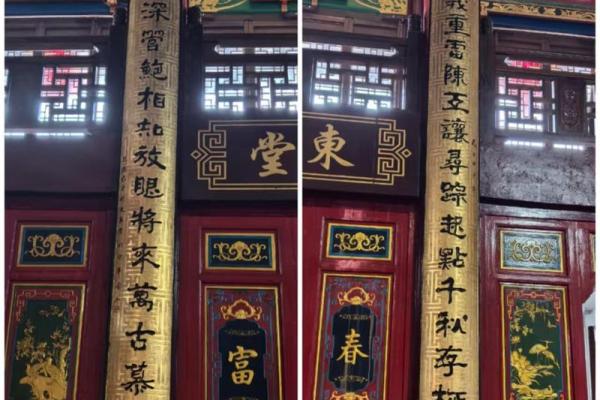 重雷陳互讓尋踪起點千秋存
東堂
春
富
深管鮑相知放眼將來萬古慕